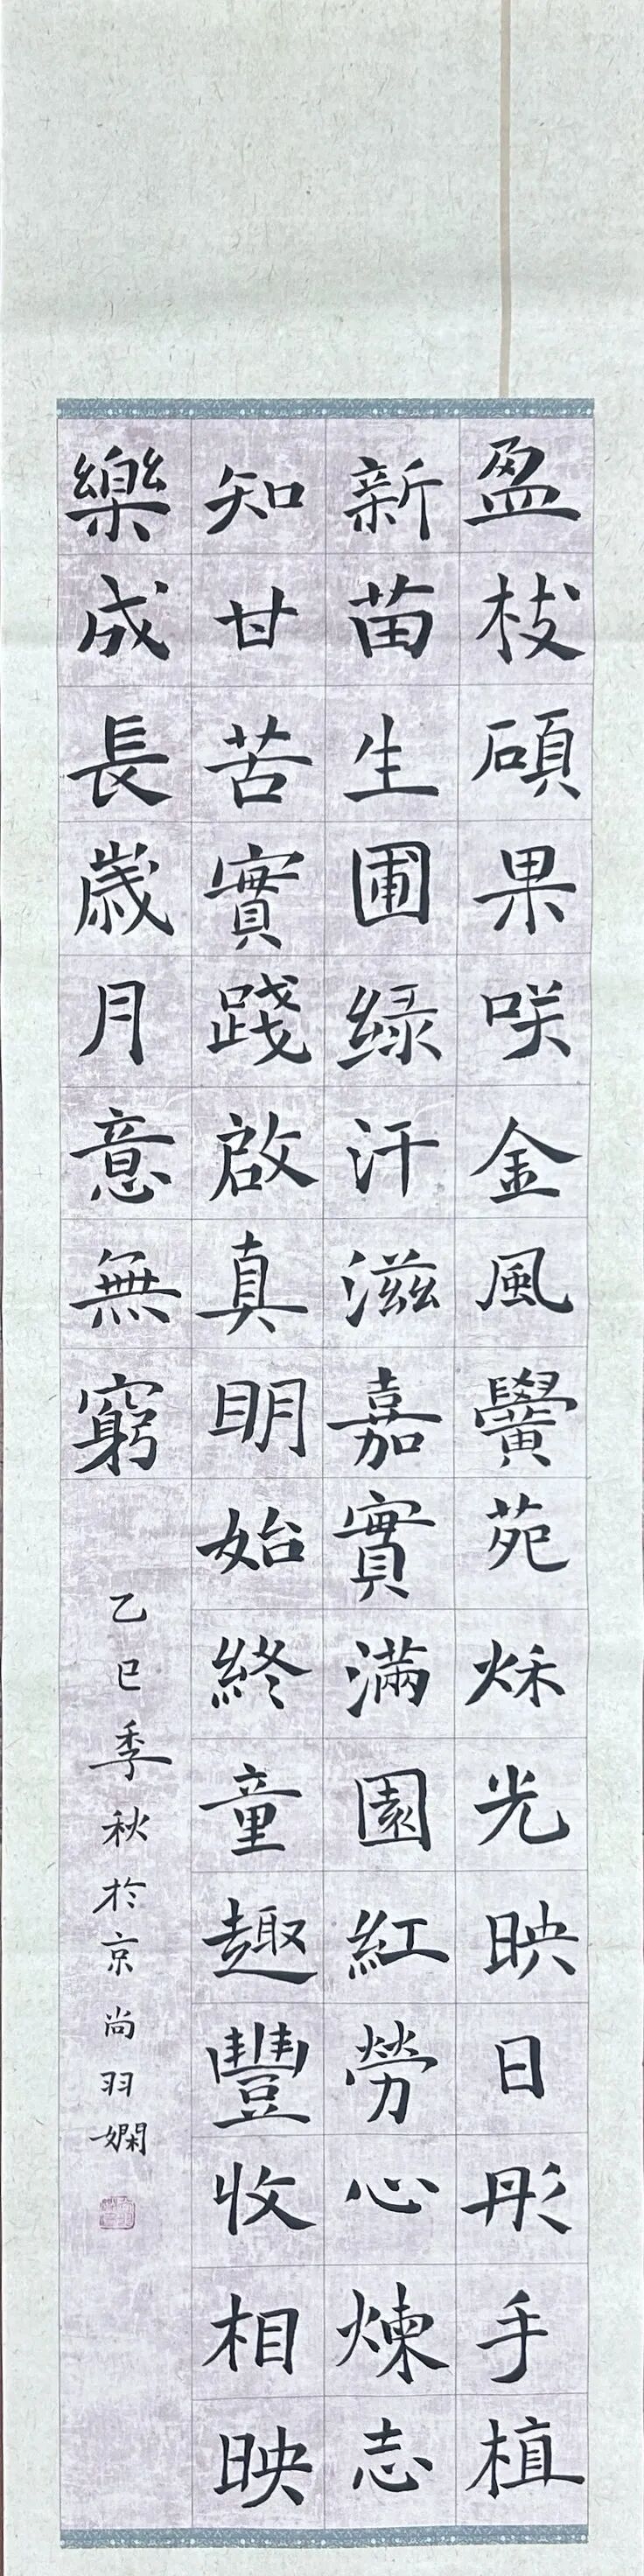 盈枝碩果咲金風黌苑烌光映日彤手植
新苗生圃緑汗滋嘉實滿園紅勞心煉志
知甘苦實踐啟真明始終童趣豐收相映
樂成長歲月意無窮
乙巳季秋於京尚羽嫻